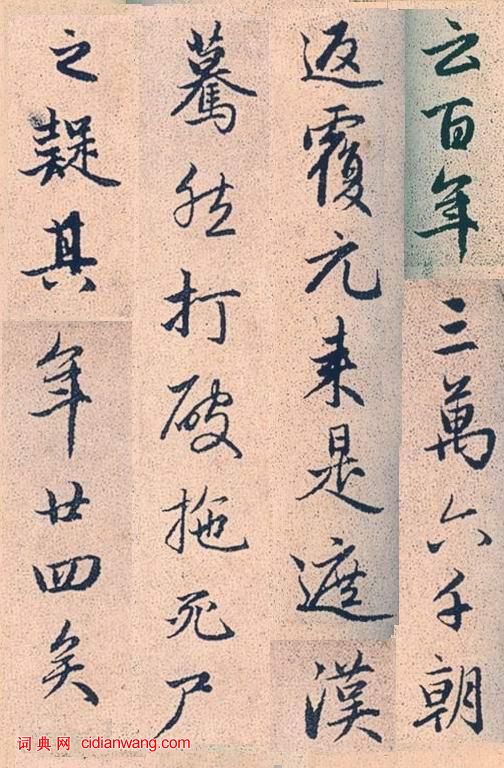 云百年三萬六千朝
返覆元来是遮漢
驀然打破拖死尸
之疑其年廿四矣
词典网 cidianwang.com